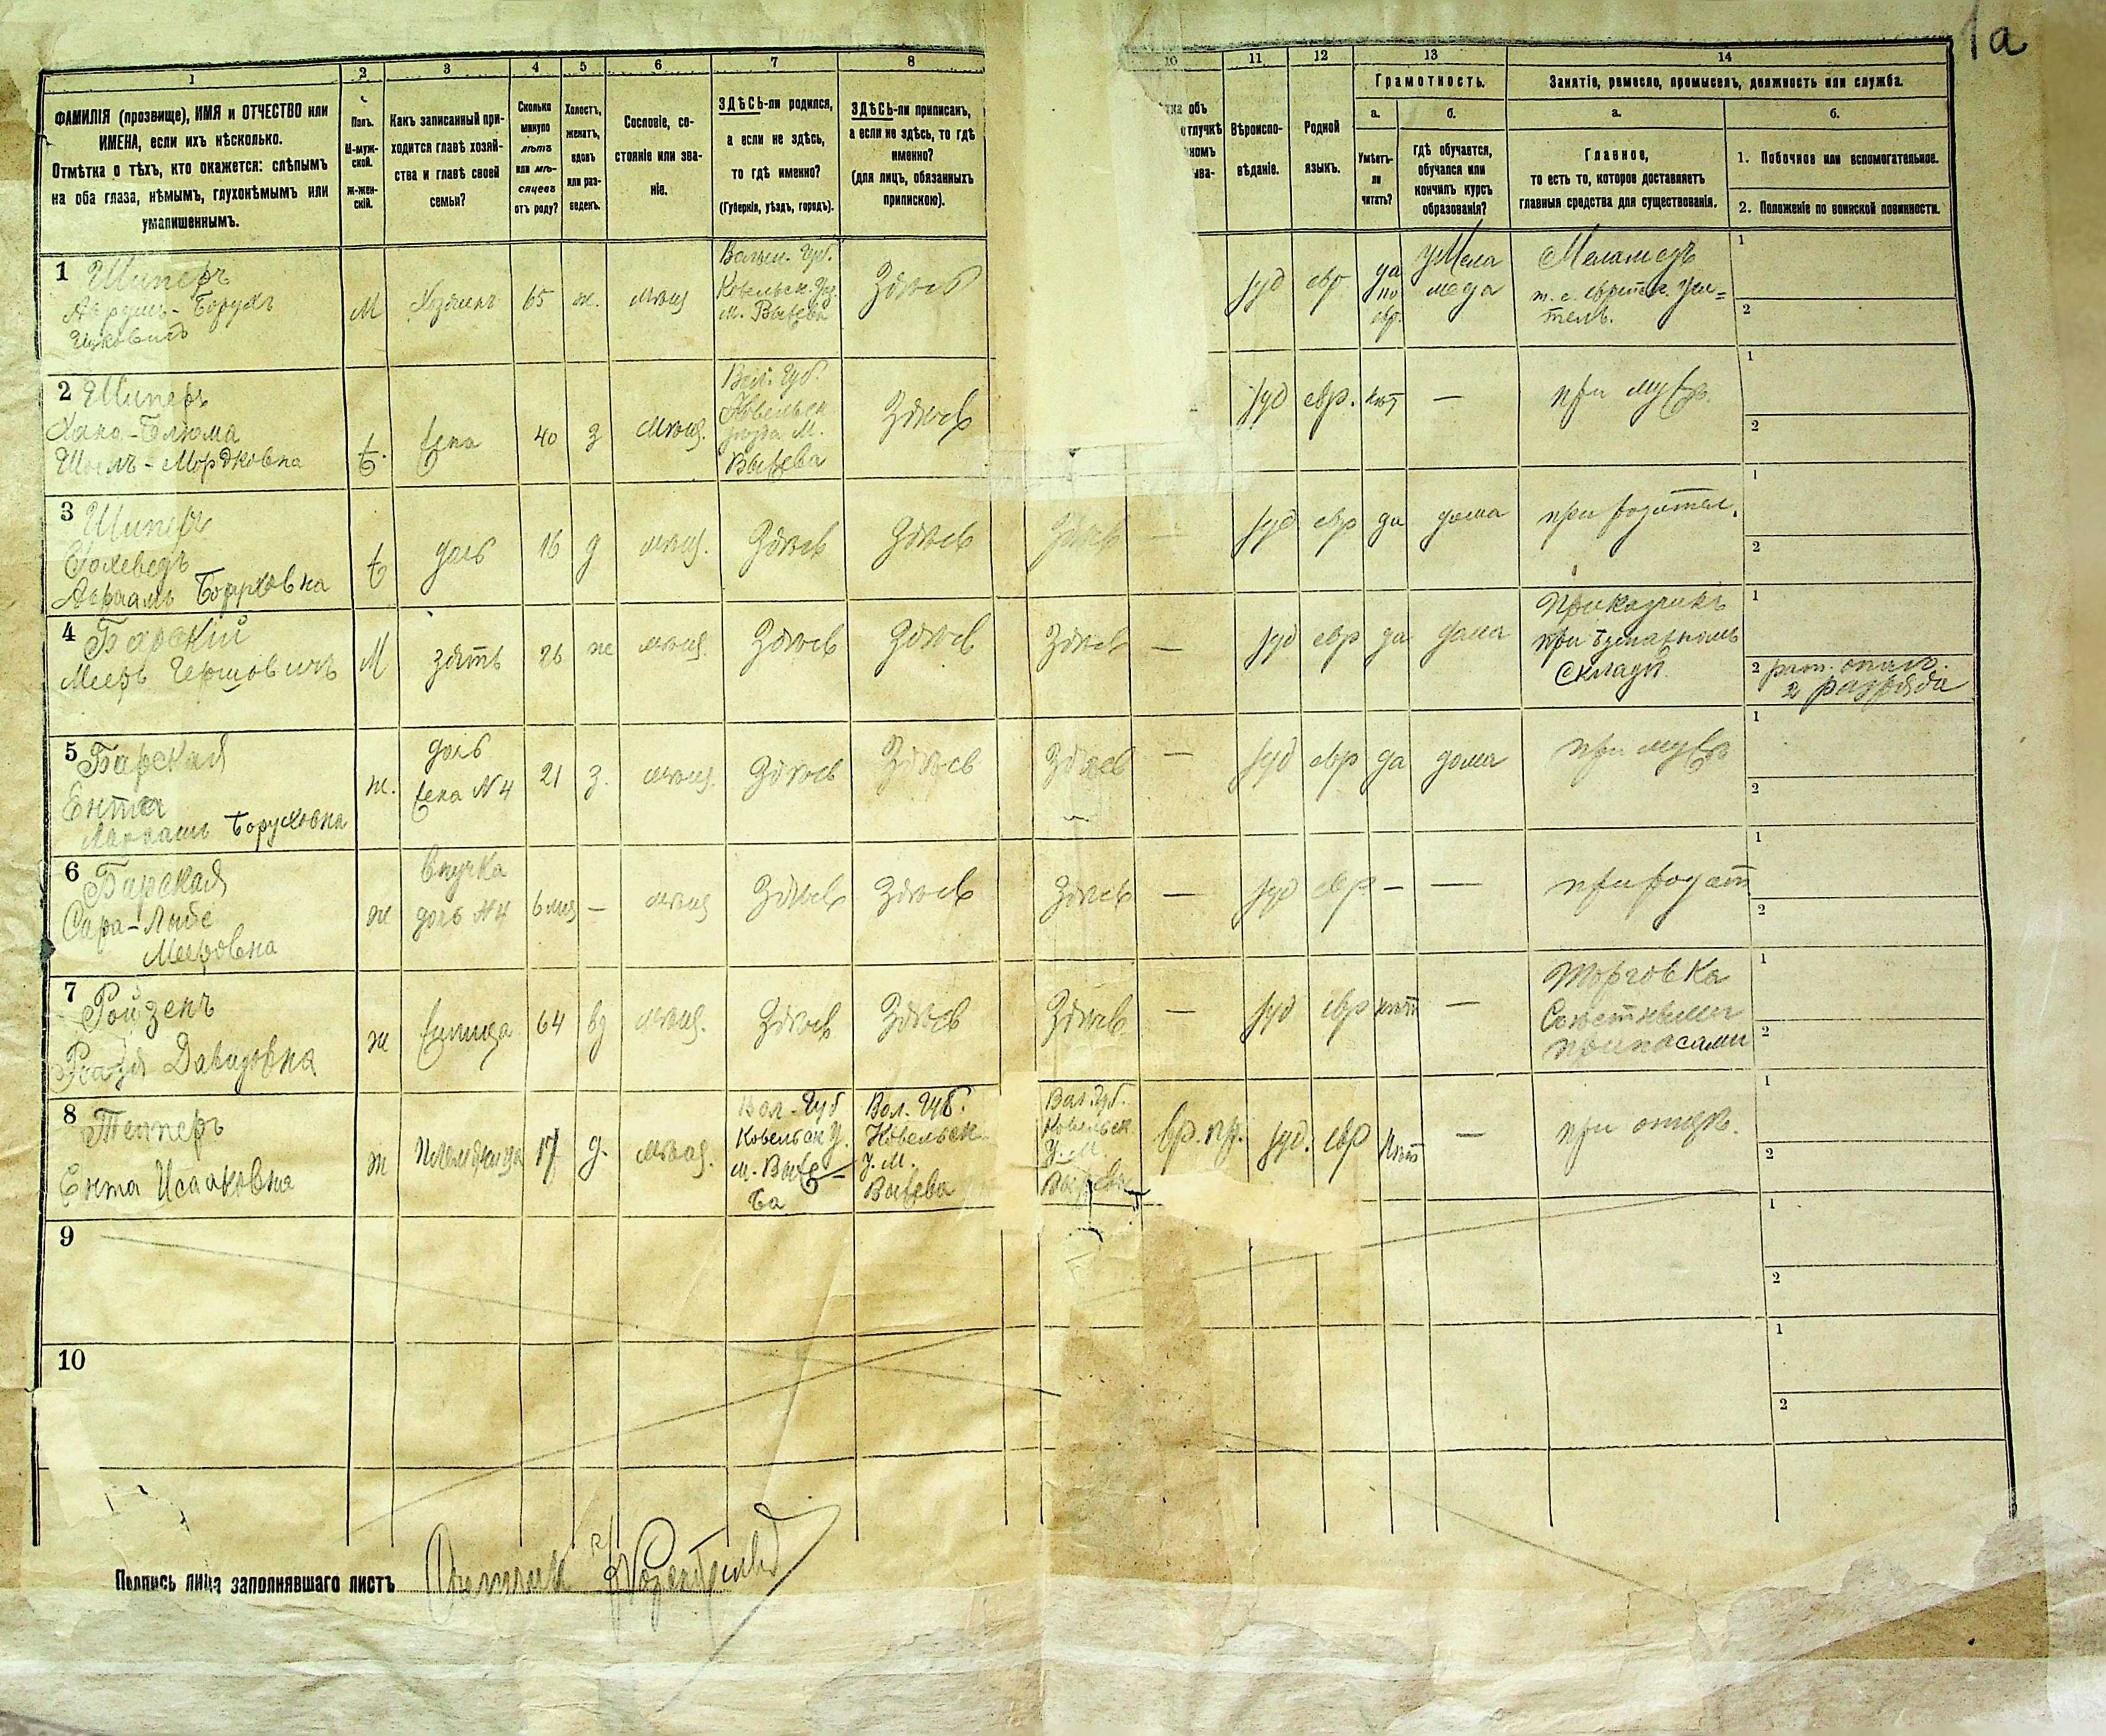 1а
1 2 3 4 5 6 7 8 10 11 12 13 14
ФАМИЛІЯ (прозвище), ИМЯ и ОТЧЕСТВО или
ИМЕНА, если ихъ нѣсколько.
Отмѣтка о тѣхъ, кто окажется: слѣпымъ
на оба глаза, нѣмымъ, глухонѣмымъ или
умалишеннымъ.
Полъ.
М-муж-
ской.
ж-жен-
скій.
Какъ записанный при-
ходится главѣ хозяй-
ства и главѣ своей
семьи?
Сколько
минуло
лѣтъ
или мѣ-
сяцевъ
отъ роду?
Холостъ,
женатъ,
вдовъ
или раз-
веденъ.
Сословіе, со-
стояніе или зва-
ніе.
ЗДѢСЬ-ли родился,
а если не здѣсь,
то гдѣ именно?
(Губернія, уѣздъ, городъ).
ЗДѢСЬ-ли приписанъ,
а если не здѣсь, то гдѣ
именно?
(для лицъ, обязанныхъ
припискою).
объ
отлучкѣ
Вѣроиспо-
вѣданіе.
Родной
языкъ.
Грамотность.
а.
Умѣетъ-
ли
читать?
б.
гдѣ обучается,
обучался или
кончилъ курсъ
образованія?
Занятіе, ремесло, промыселъ, должность или служба.
а.
Главное,
то есть то, которое доставляетъ
главныя средства для существованія.
б.
1. Побочное или вспомогательное.
2. Положеніе по воинской повинности.
1 Шиперъ
Борухъ
Ицковичъ
М
Хозяинъ
65
ж.
мѣщ
Волын. Губ.
Ковельск. У.
м. Выжва
Здѣсь
іуд
евр
да
по
евр.
у Мела
меда
Меламедъ
т. е. еврейск. учи=
тель.
1
2
2 Шиперъ
Хана-Блюма
Мордковна
ж.
жена
40
з
мѣщ.
Вол. Губ.
Ковельск
уѣзда М.
Выжва
Здѣсь
іуд
евр.
нѣт
—
при мужѣ.
1
2
3 Шиперъ
Авраамъ Борховна
ж
дочь
16
д
мѣщ.
Здѣсь
Здѣсь
Здѣсь
—
іуд
евр
да
дома
при родител.
1
2
4 Барскій
Мееръ Гершовичъ
М
зять
26
ж
мѣщ.
Здѣсь
Здѣсь
Здѣсь
—
іуд
евр
да
дома
Приказчикъ
при
складѣ.
1
2 рат. опалч.
2 разряда
5 Барская
Ента
Авраамъ Боруховна
ж.
дочь
жена N 4
21
з.
мѣщ.
Здѣсь
Здѣсь
Здѣсь
—
іуд
евр
да
дома
при мужѣ
1
2
6 Барская
Сара-Лыбе
Мееровна
ж
внучка
дочь N4
6 мѣс
—
мѣщ
Здѣсь
Здѣсь
Здѣсь
—
іуд
евр
—
—
при родат
1
2
7 Ройзенъ
Давидовна
ж
64
вд
мѣщ.
Здѣсь
Здѣсь
Здѣсь
—
іуд
евр
нѣт
—
Торговка
Съѣстными
припасами
1
2
8 Теперъ
Ента Исааковна
ж
Племяница
17
д.
мѣщ.
Вол. Губ
Ковельск У.
м. Выж-
ва
Вол. Губ.
Ковельск
У. М.
Выжва
Вол. Губ.
Ковельск
У. М.
Выжва
вр. пр.
іуд.
евр
Нѣт
—
при отцѣ.
1
2
9
1
2
10
1
2
Подпись лица заполнявшаго листъ